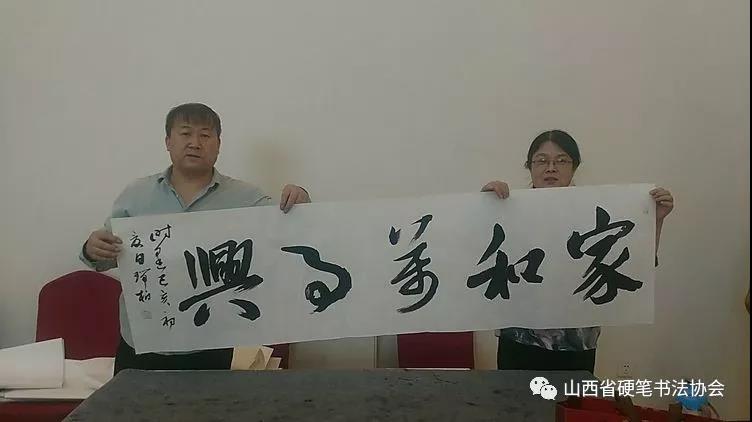 家和萬事興
时在己亥初
夏日
山西省硬笔书法协会